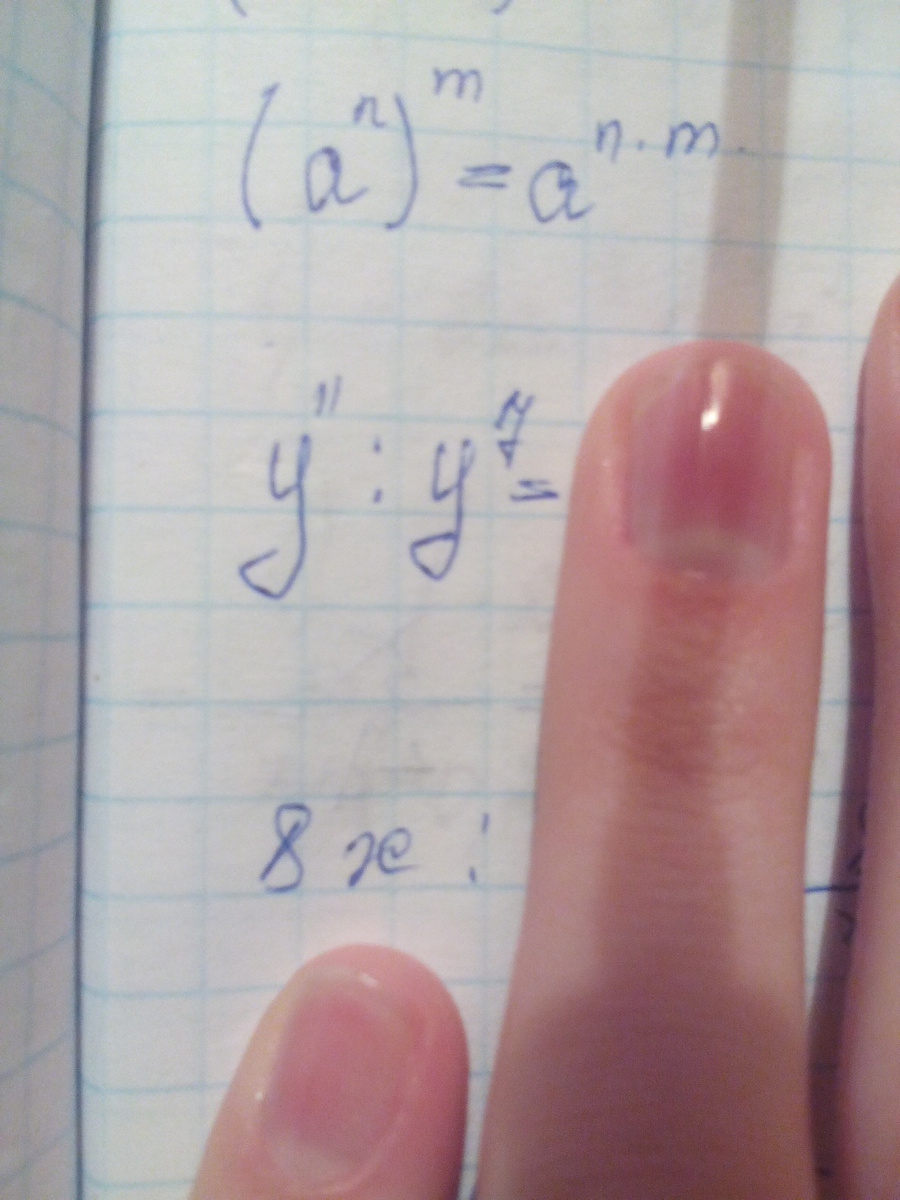 (aⁿ)ᵐ = aⁿ·ᵐ
y¹¹ : y⁷ =
8x :